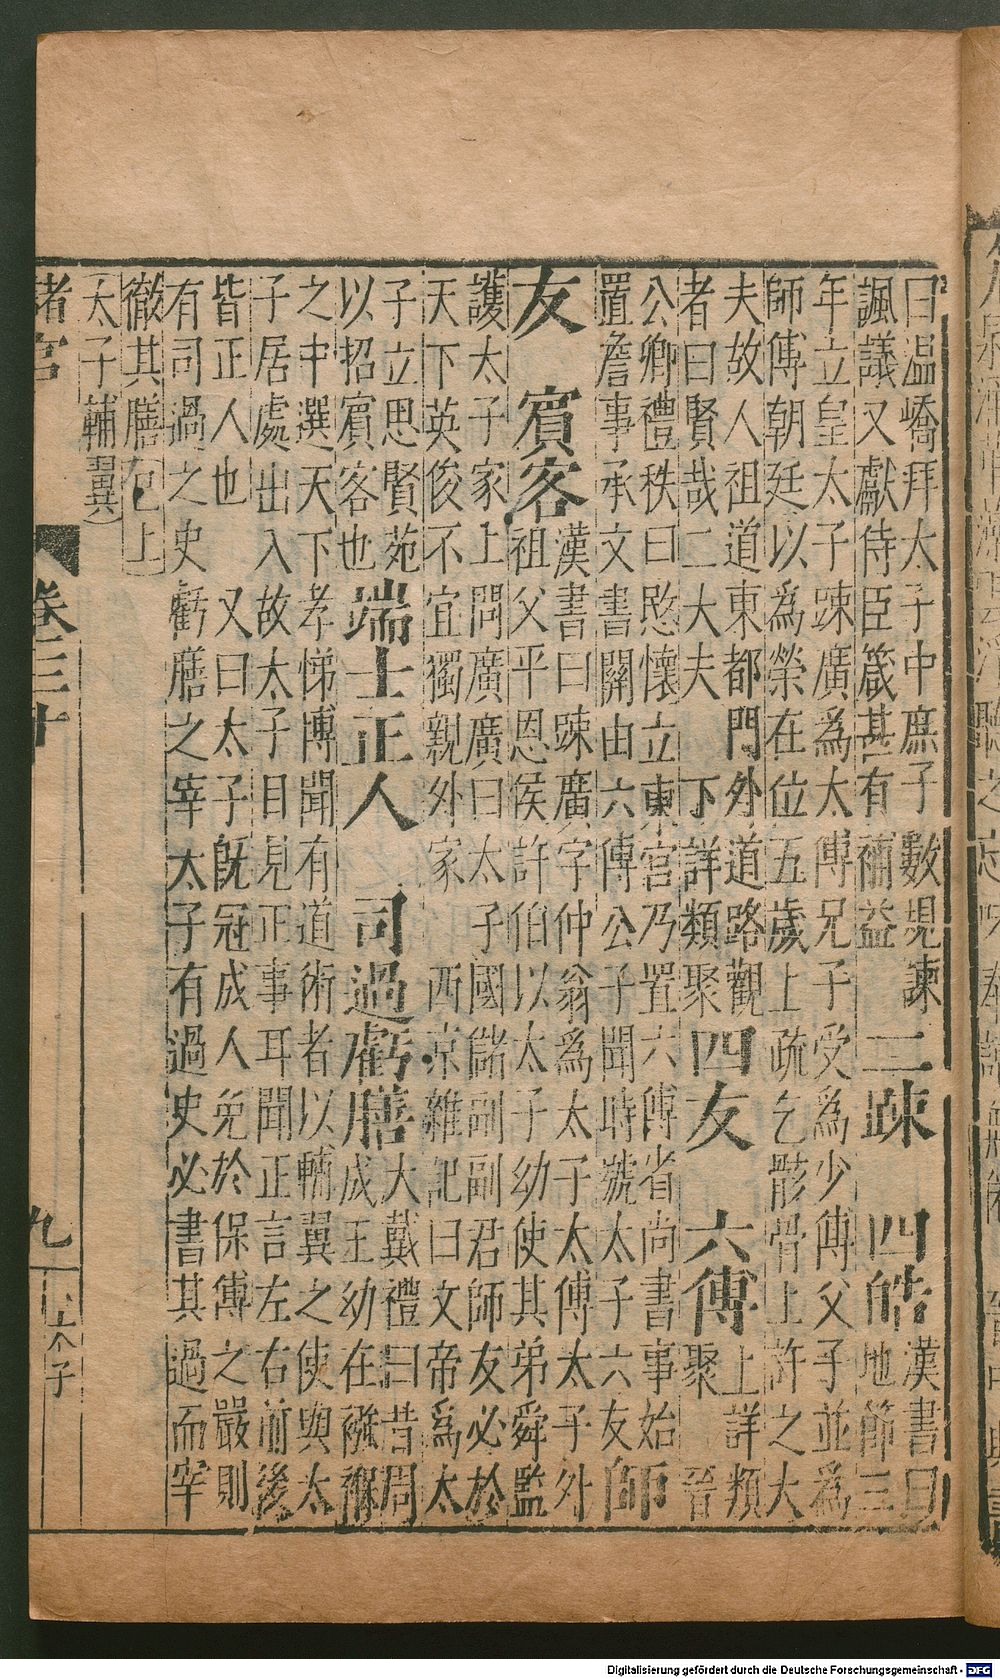 曰温嶠拜太子中庶子數規諫 二踈 四皓 漢書曰
諷議又獻侍臣箴甚有補益 地節三
年立皇太子踈廣為太傅兄子受為少傅父子並為
師傅朝廷以為榮在位五歲上疏乞骸骨上許之大
夫故人祖道東都門外道路觀 四友 六傅 上詳類
者曰賢哉二大夫 下詳類聚 聚 晉
公卿禮秩曰愍懷立東宫乃置六傅省尚書事始 師
置詹事承文書關由六傅公子聞時號太子六友
友 賓客 漢書曰踈廣字仲翁為太子太傅太子外
祖父平恩侯許伯以太子幼使其弟舜監
護太子家上問廣廣曰太子國儲副君師友必於
天下英俊不宜獨親外家 西京雜記曰文帝為太
子立思賢苑 端士正人 司過虧膳 大戴禮曰昔周
以招賓客也 成王幼在襁褓
之中選天下孝悌博聞有道術者以輔翼之使與太
子居處出入故太子目見正事耳聞正言左右前後
皆正人也 又曰太子旣冠成人免於保傅之嚴則
有司過之史虧膳之宰太子有過史必書其過而宰
徹其膳已上
太子輔翼
儲宫 卷三十 九 太子
Digitalisierung gefördert durch die Deutsche Forschungsgemeinschaft - DFG